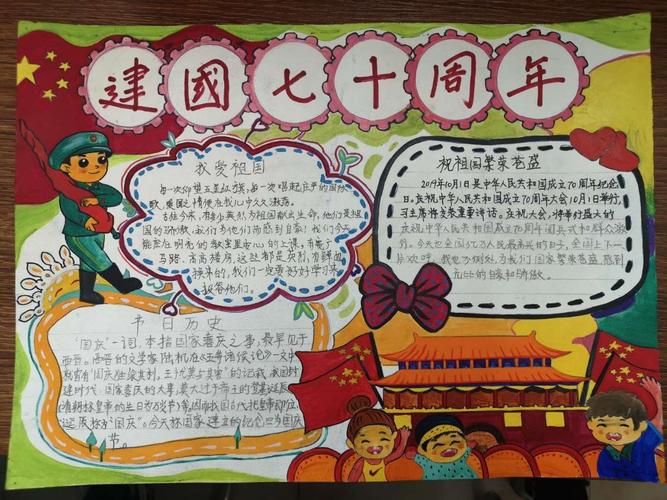 建國七十周年
我爱祖国
每一次仰望五星红旗,每一次唱起庄严的国际
歌,爱国之情便在我心中久久激荡。
古往今来,有多少英烈为祖国献出生命,他们是祖
国的骄傲,我们为他们而感到自豪!我们今天
能坐在明亮的教室里安心的上课,有宽广
马路、高高楼房,这些都是英烈,有鲜血
换来的,我们一定要好好学习来
报答他们。
祝祖国繁荣昌盛
2019年10月1日是中华人民共和国成立70周年纪念
日。庆祝中华人民共和国成立70周年大会10月1日举行,
习主席将发表重要讲话。庆祝大会,将举行盛大的
庆祝中华人民共和国成立70周年阅兵式和群众游
行。今天也全国亿万人民最高兴的日子,全国上下一
片欢呼。我也为例外,为我们国家繁荣昌盛,感到
无比的自豪和骄傲。
节日历史
“国庆”一词,本指国家喜庆之事,最早见于
西晋。西晋的文学家陆机在《五等诸侯论》一文中
就曾有“国庆独飨其利,主忧莫与其害”的记载,我国封
建时代、国家喜庆的大事,莫大过于帝王的登基、诞辰
(清朝称皇帝的生日为万岁节)等,因而我国古代把皇帝即位、
诞辰称为“国庆”。今天称国家建立的纪念日为国庆
节。